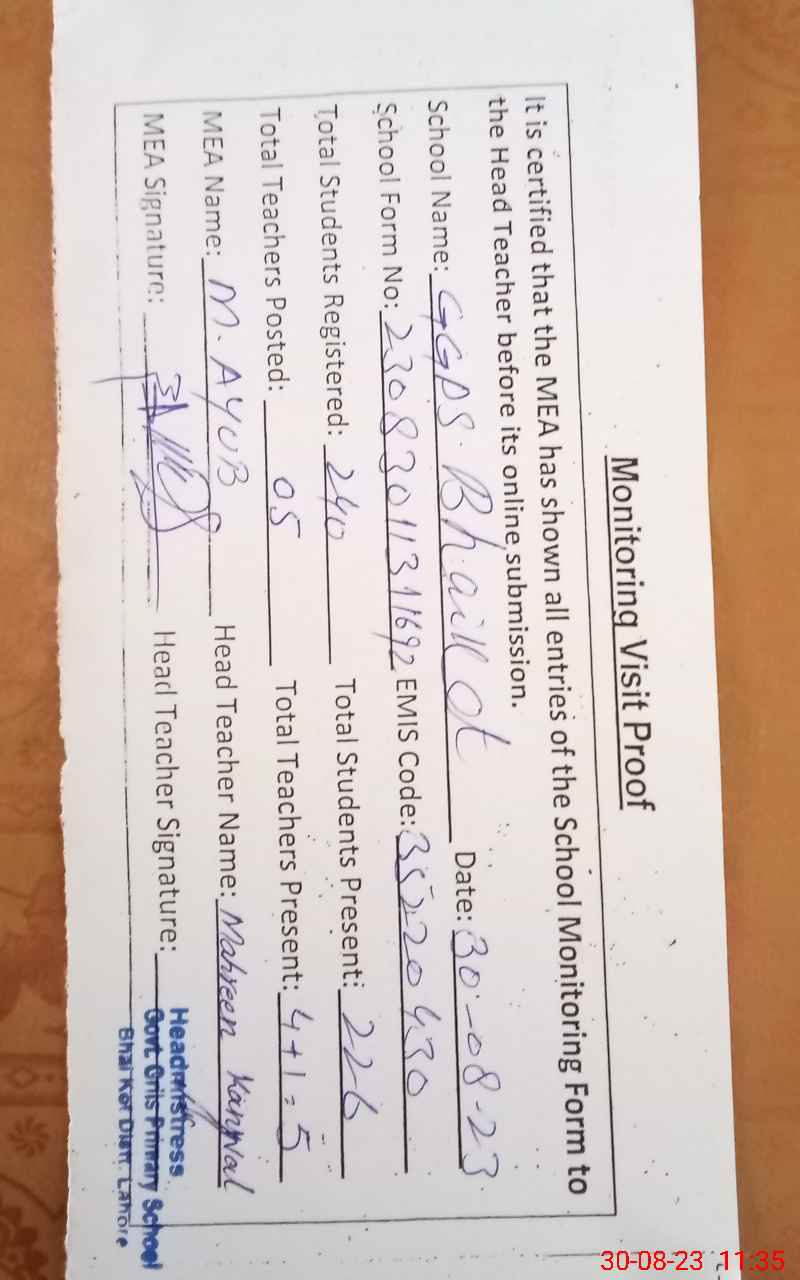 Monitoring Visit Proof
It is certified that the MEA has shown all entries of the School Monitoring Form to
the Head Teacher before its online submission.
School Name: GGPS. Bhaikot Date: 30-08-23
School Form No: 23083011311692 EMIS Code: 35220430
Total Students Registered: 240 Total Students Present: 226
Total Teachers Posted: 05 Total Teachers Present: 4+1=5
MEA Name: M. AYUB Head Teacher Name: Mahreen Kanwal
MEA Signature: Head Teacher Signature:
Headmistress
Govt. Grils Primary School
Bhai Kot Distt. Lahore
30-08-23 11:35